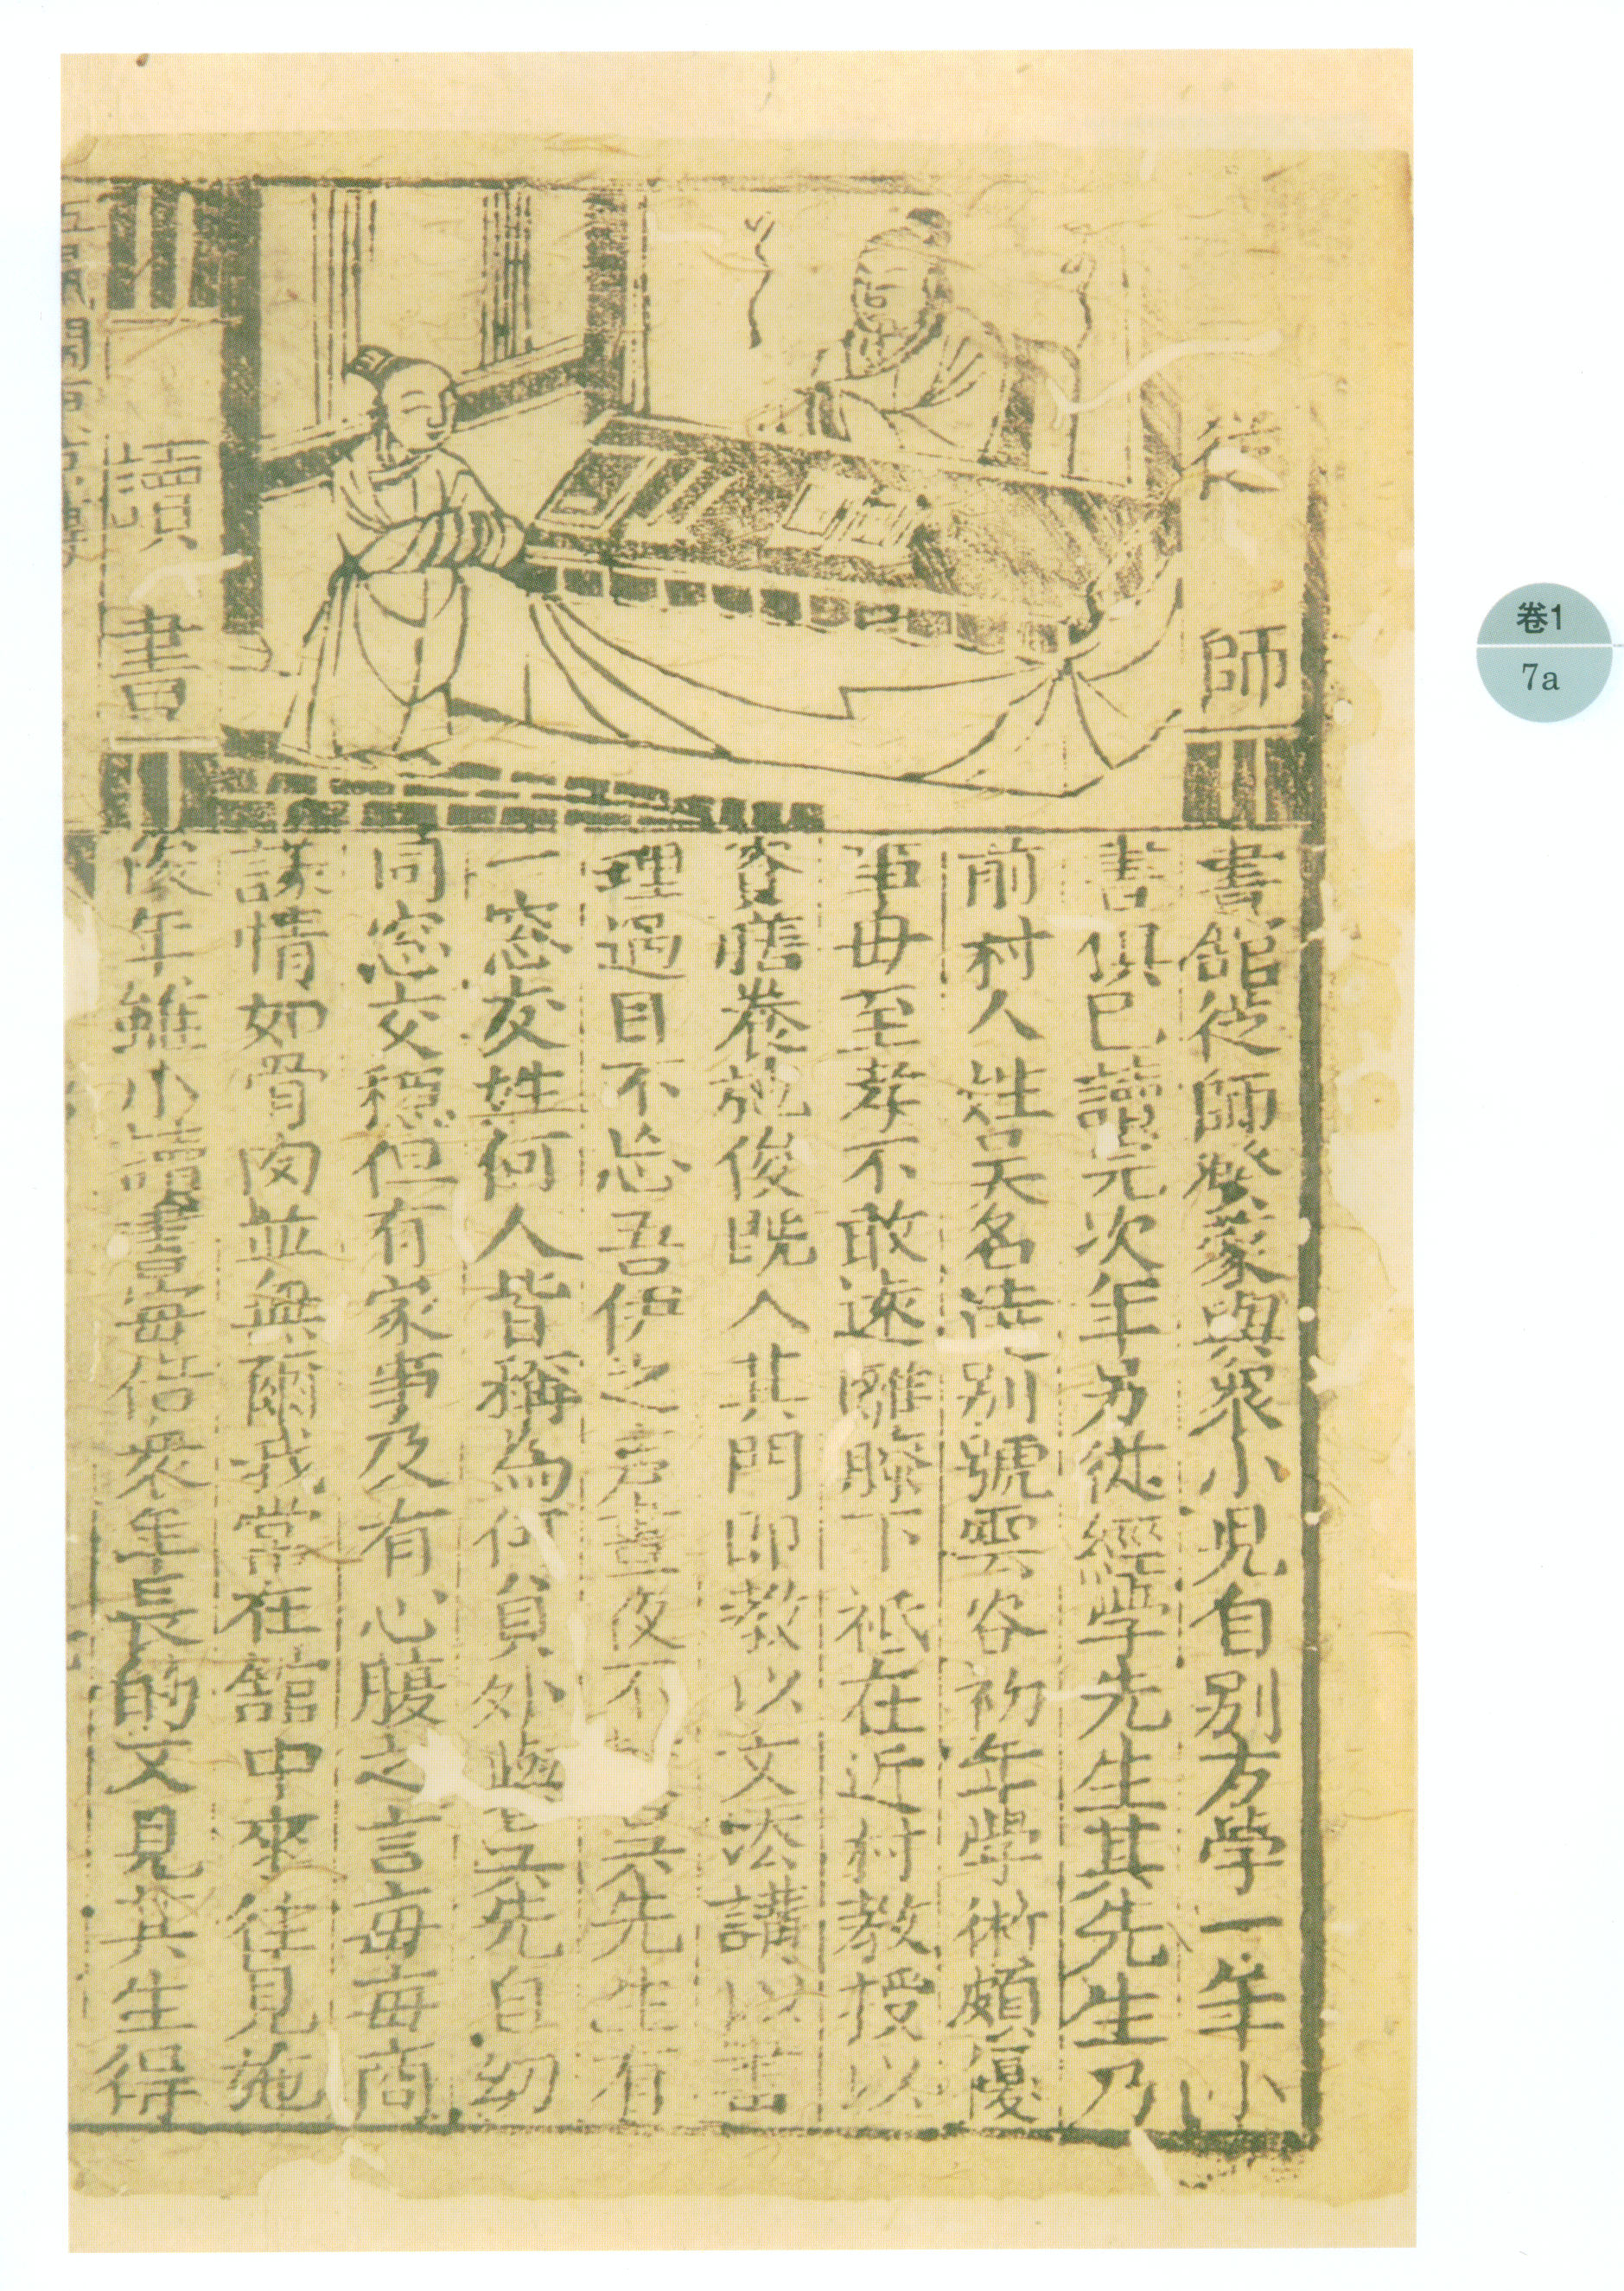 從師
讀書
書舘從師發蒙與衆小児自别方學一年小
書俱已讀完次年另從經學先生其先生乃
前村人姓吴名法别號雲谷初年學術頗優
事毋至孝不敢遠離膝下祗在近村教授以
資膳養施俊既入其門即教以文法講以書
理過目不忘吾伊之声晝夜不吴先生有
一窓友姓何人皆稱為何員外與吴先自幼
同窓交穏但有家事及有心腹之言毎毎商
議情如骨肉並無爾我常在舘中來往見施
俊年雖小讀書毎倍衆年長的文見其生得
卷1
7a